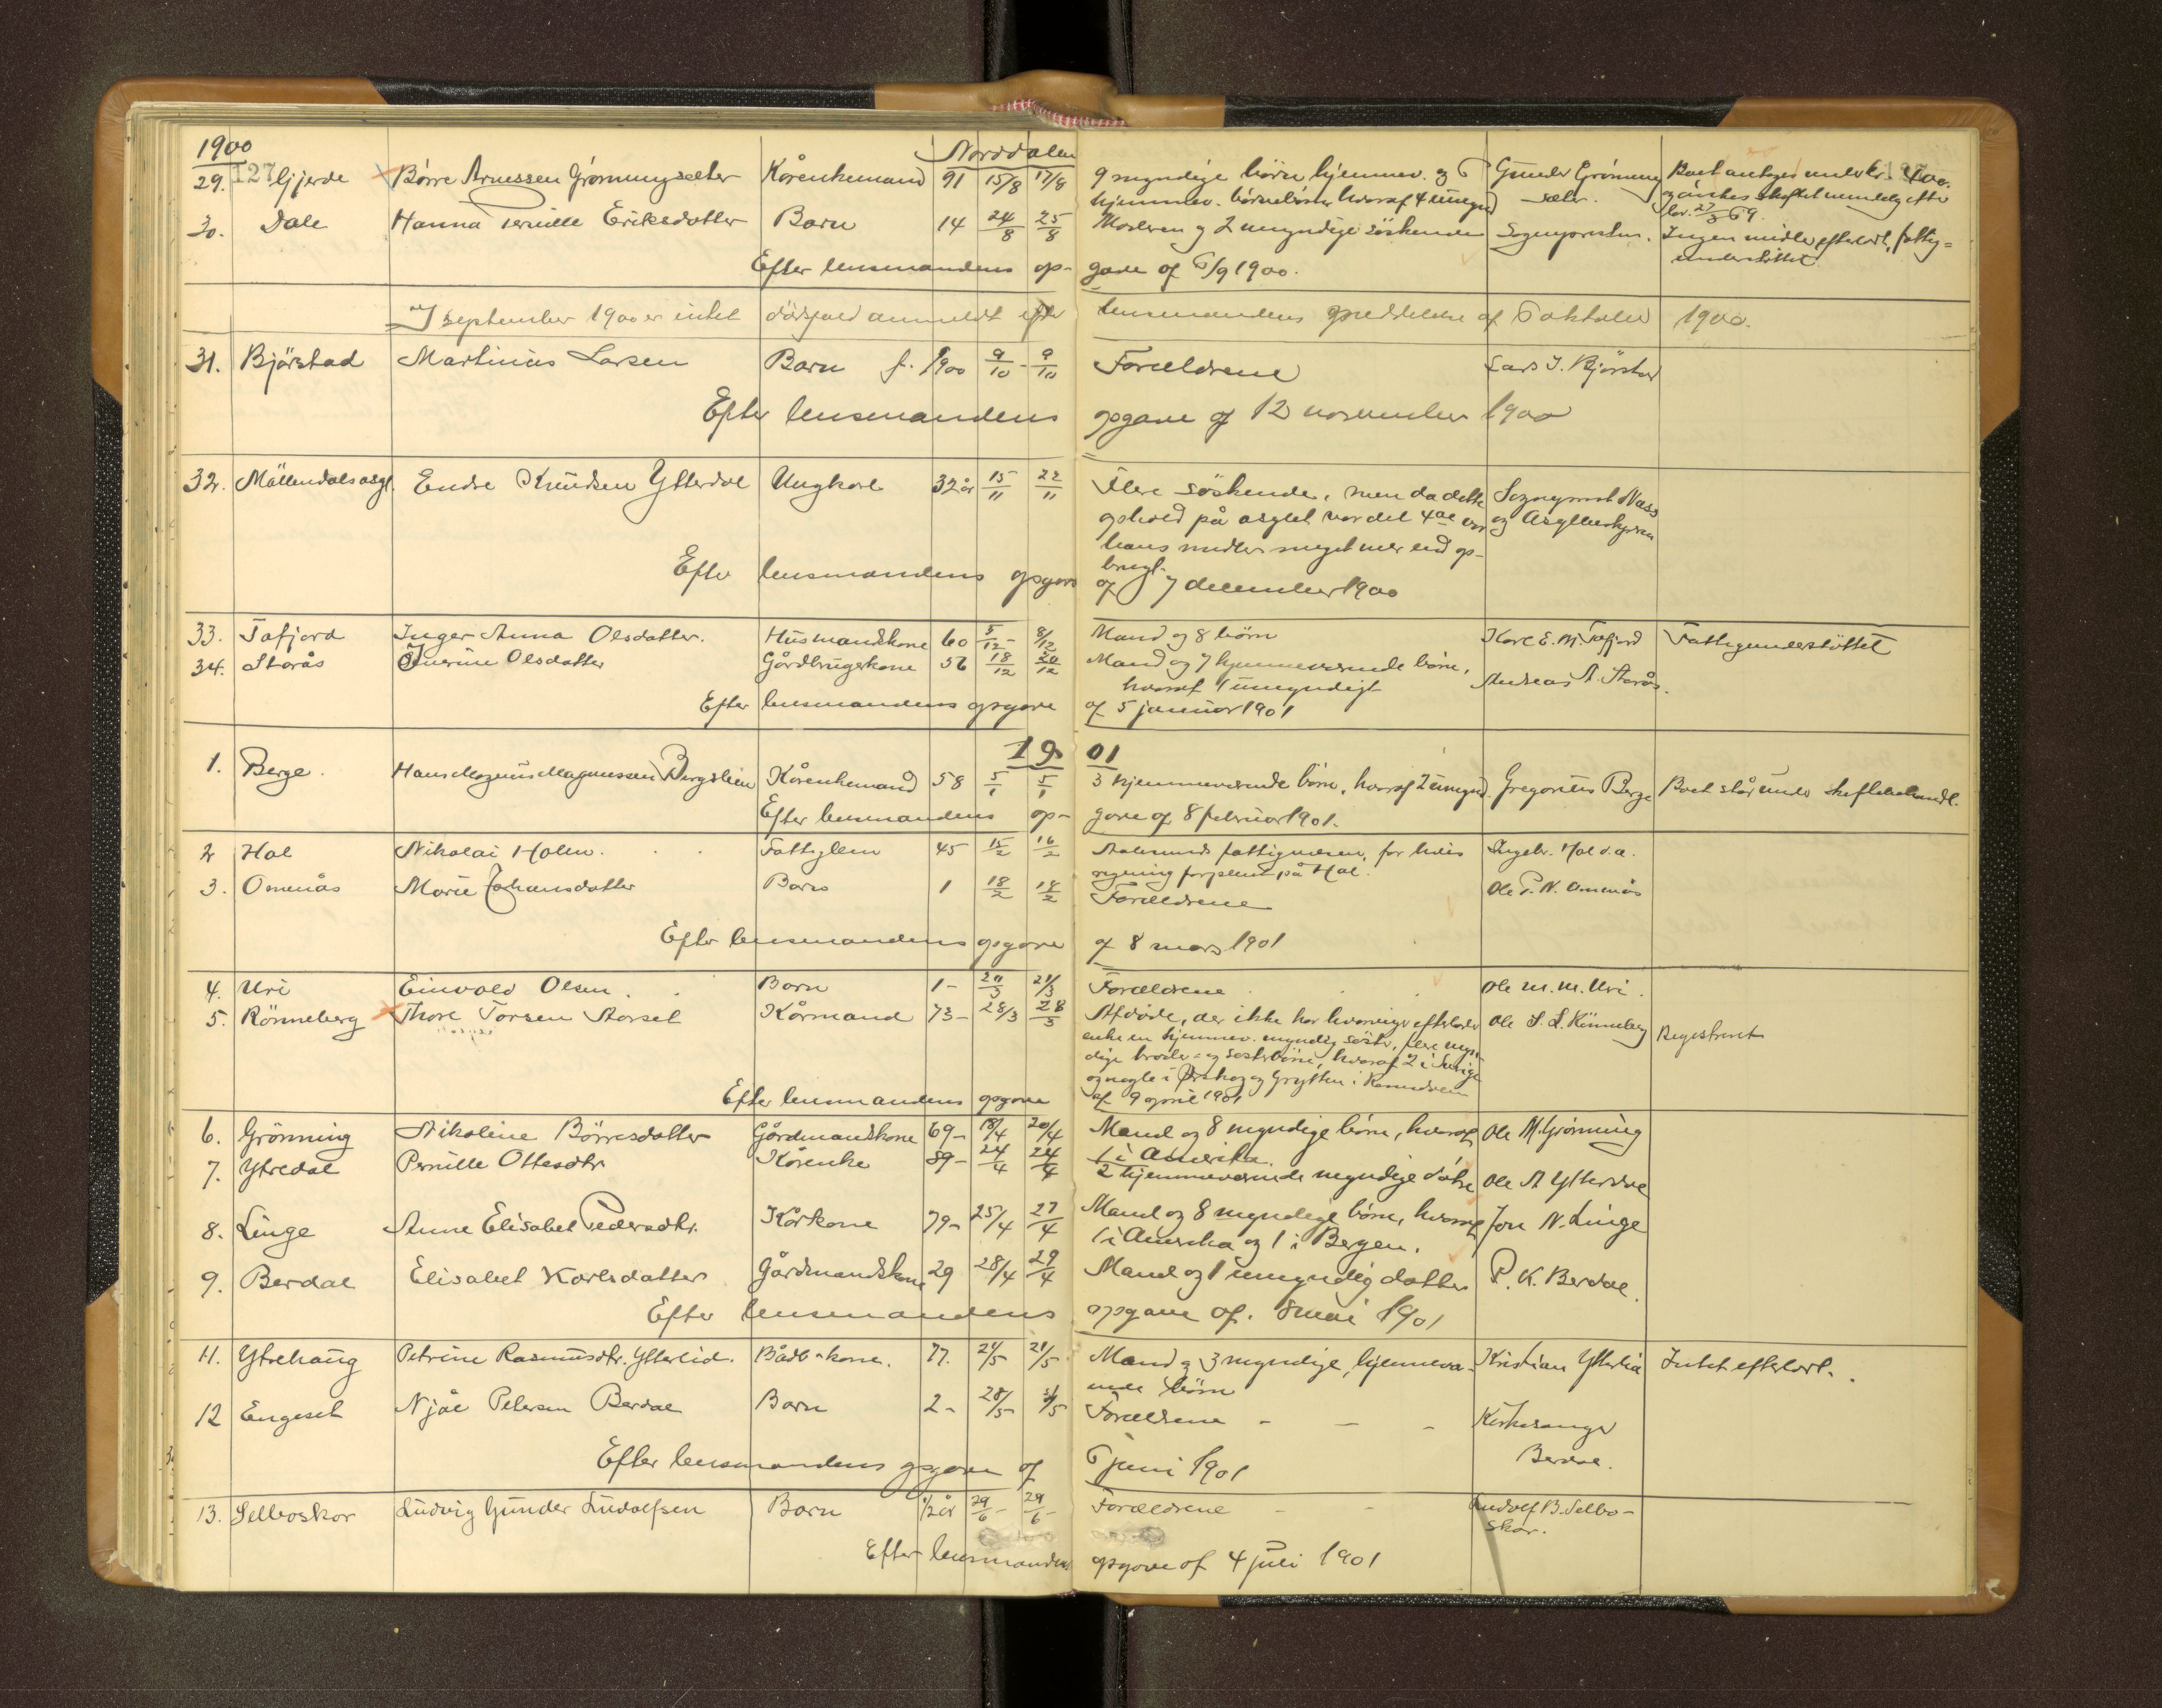 1900 Norddalen
29. 127 Gjerde Börre Arnessen Grönningsæter Kårenkemand 91 15/8 17/8 9 myndige börn hjemmev. og 6 Gunder Grönning Boet antages under kr. 400.
hjemmev. börnebörn hvoraf 4 umynd sæter. og önskes skiftet mindelig efter
lov. 27/3 69.
30. Dale Hanna Pernille Eriksdatter Barn 14 24/8 25/8 Moderen og 2 umyndige söskende Sognepresten. Ingen midler efterladt, fattig=
understöttet
Efter lensmandens op- gave af 6/9 1900.
I september 1900 er intet dödsfald anmeldt efter lensmandens af 6 oktober 1900.
31. Björstad Martinus Larsen Barn f. 1900 9/10 - 9/10 Forældrene Lars J. Björstad
Efter lensmandens opgave af 12 november 1900
32. Möllendalsasyl. Endre Knudsen Ytterdal Ungkarl 32 år 15/11 22/11 Flere söskende, men da dette Sogneprest Nass
ophold på asylet var det 4de var og Asylbestyreren
hans midler meget mer end op-
brugt.
Efter lensmandens opgave af 7 december 1900
33. Tafjord Inger Anna Olsdatter. Husmandskone 60 5/12 - 8/12 Mand og 8 börn Karl E. M. Tafjord Fattigunderstöttet
34. Storås Iverine Olsdatter Gårdbrugerkone 56 18/12 20/12 Mand og 7 hjemmeværende börn, Andreas A. Storås.
hvoraf 1 umyndigt
Efter lensmandens opgave af 5 januar 1901
1901
1. Berge. Hans Mogens Magnussen Bergslien Kårenkemand 58 5/1 5/1 3 hjemmeværende börn, hvoraf 2 umynd. Gregorius Berge Boet står under skiftebehandl.
Efter lensmandens op- gave af 8 februar 1901.
2 Hol Nikolai Holm. Fattiglem 45 15/2 16/2 Aalesunds fattigvæsen, for hvis Ingebr. Hol d.æ.
regning forpleiet på Hol.
3. Omenås Marie Johansdatter Barn 1 18/2 18/2 Forældrene Ole P. N. Omenås
Efter lensmandens opgave af 8 mars 1901
4. Uri Einvald Olsen. Barn 1- 20/3 21/3 Forældrene Ole M. M. Uri.
5. Rönneberg Thore Torsen Storset Kårmand 73- 28/3 28/3 Afdöde, der ikke har efterlader Ole S. L. Rönneberg Registreret
enke en hjemmev. myndig söster, flere myn-
dige broder= og sösterbörn, hvoraf 2 i Sverige
og nogle i Örskog og Grytten i Romsdalen
Efter lensmandens opgave af 9 april 1901
6. Grönning Nikoline Börresdatter Gårdmandskone 69- 18/4 20/4 Mand og 8 myndige börn, hvoraf Ole M. Grönning
1 i Amerika.
7. Ytredal Pernille Ottesdtr. Kårenke 89- 24/4 24/4 2 hjemmeværende myndige dötre Ole A Ytterdal
8. Linge Anne Elisabet Pedersdtr. Kårkone 79- 25/4 27/4 Mand og 8 myndige börn, hvoraf Jon N. Linge
1 i Amerika og 1 i Bergen.
9. Berdal Elisabet Karlsdatter Gårdmandskone 29 28/4 29/4 Mand og 1 umyndig datter P. K. Berdal.
Efter lensmandens opgave af. 8 mai 1901
11. Ytrehaug Petrine Rasmusdtr. Ytterlid. kone. 77. 21/5 21/5 Mand og 3 myndige, hjemmevæ- Kristian Ytterlid Intet efterladt.
rende börn
12 Engeset Njål Petersen Berdal Barn 2- 28/5 31/5 Forældrene - - - Kirkesanger
Berdal.
Efter lensmandens opgave af 6 juni 1901
13. Selboskar Ludvig Gunder Ludolfsen Barn 1/2 år 29/6 - 29/6 - Forældrene - - Ludolf B. Selbo-
skar.
Efter lensmandens opgave af 4 juli 1901